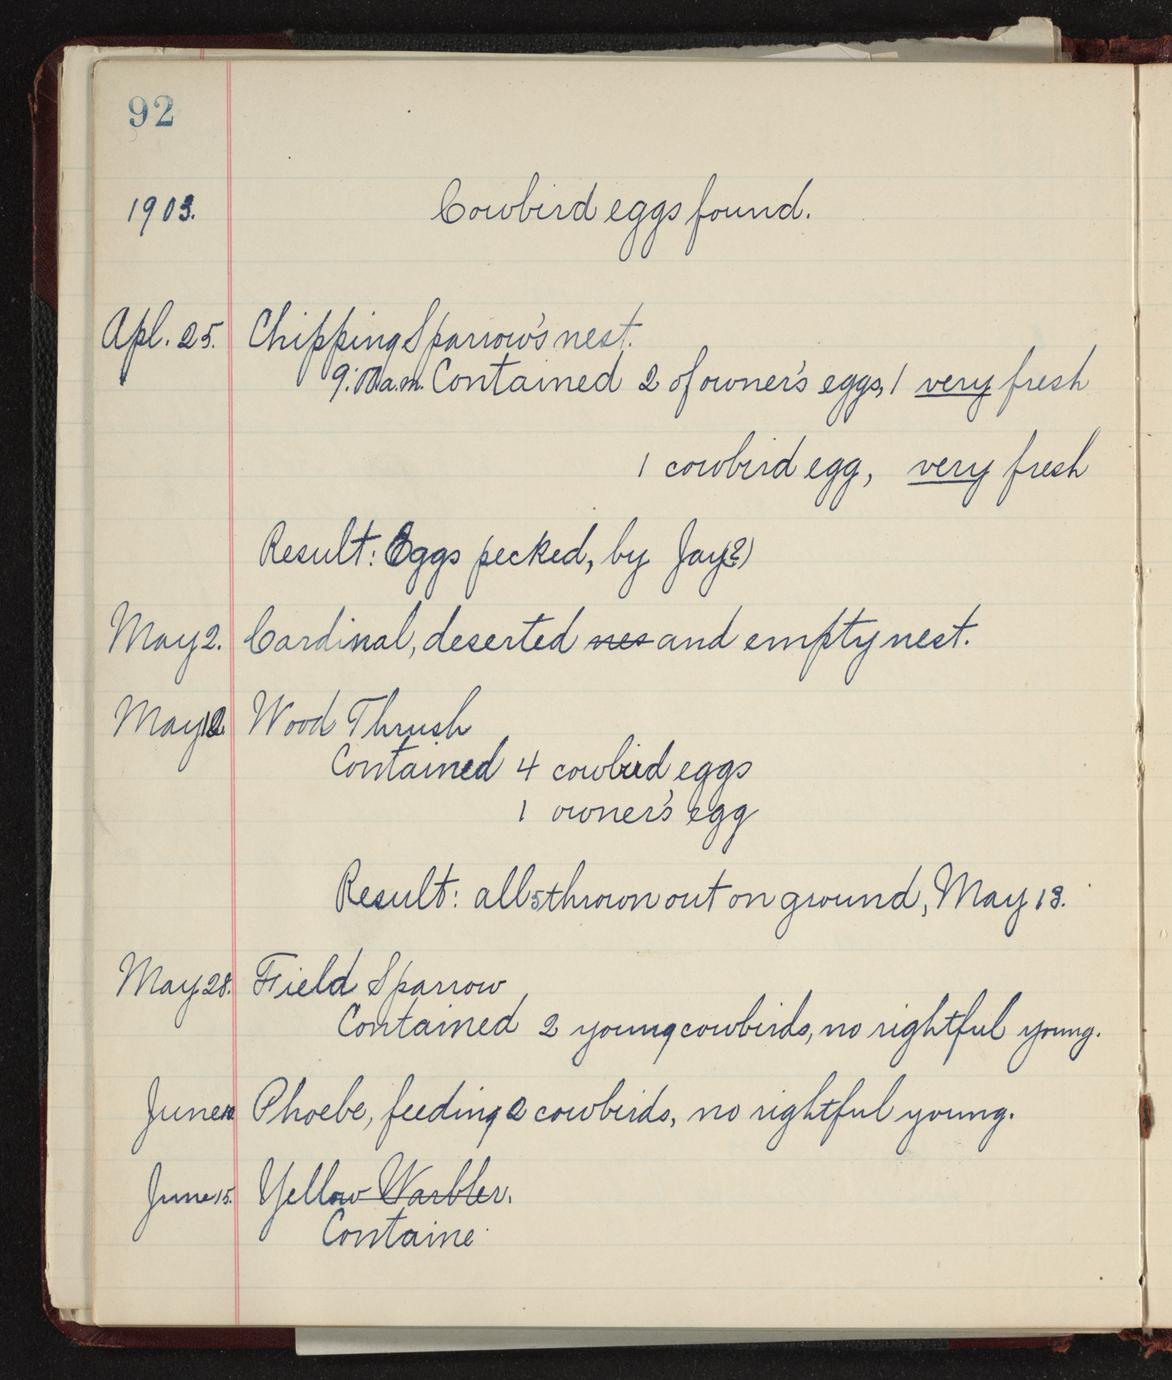 92
1903. Cowbird eggs found.
Apl. 25. Chipping Sparrow's nest.
9:00 a.m. Contained 2 of owner's eggs, 1 very fresh
1 cowbird egg, very fresh
Result: Eggs pecked, by Jay(?)
May 2. Cardinal, deserted nes and empty nest.
May 12 Wood Thrush
Contained 4 cowbird eggs
1 owner's egg
Result: all 5 thrown out on ground, May 13.
May 28. Field Sparrow
Contained 2 young cowbirds, no rightful young.
June Phoebe, feeding 2 cowbirds, no rightful young.
June 15. Yellow Warbler.
Containe